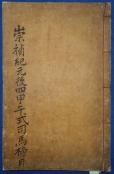 崇禎紀元後四甲午式司馬榜目